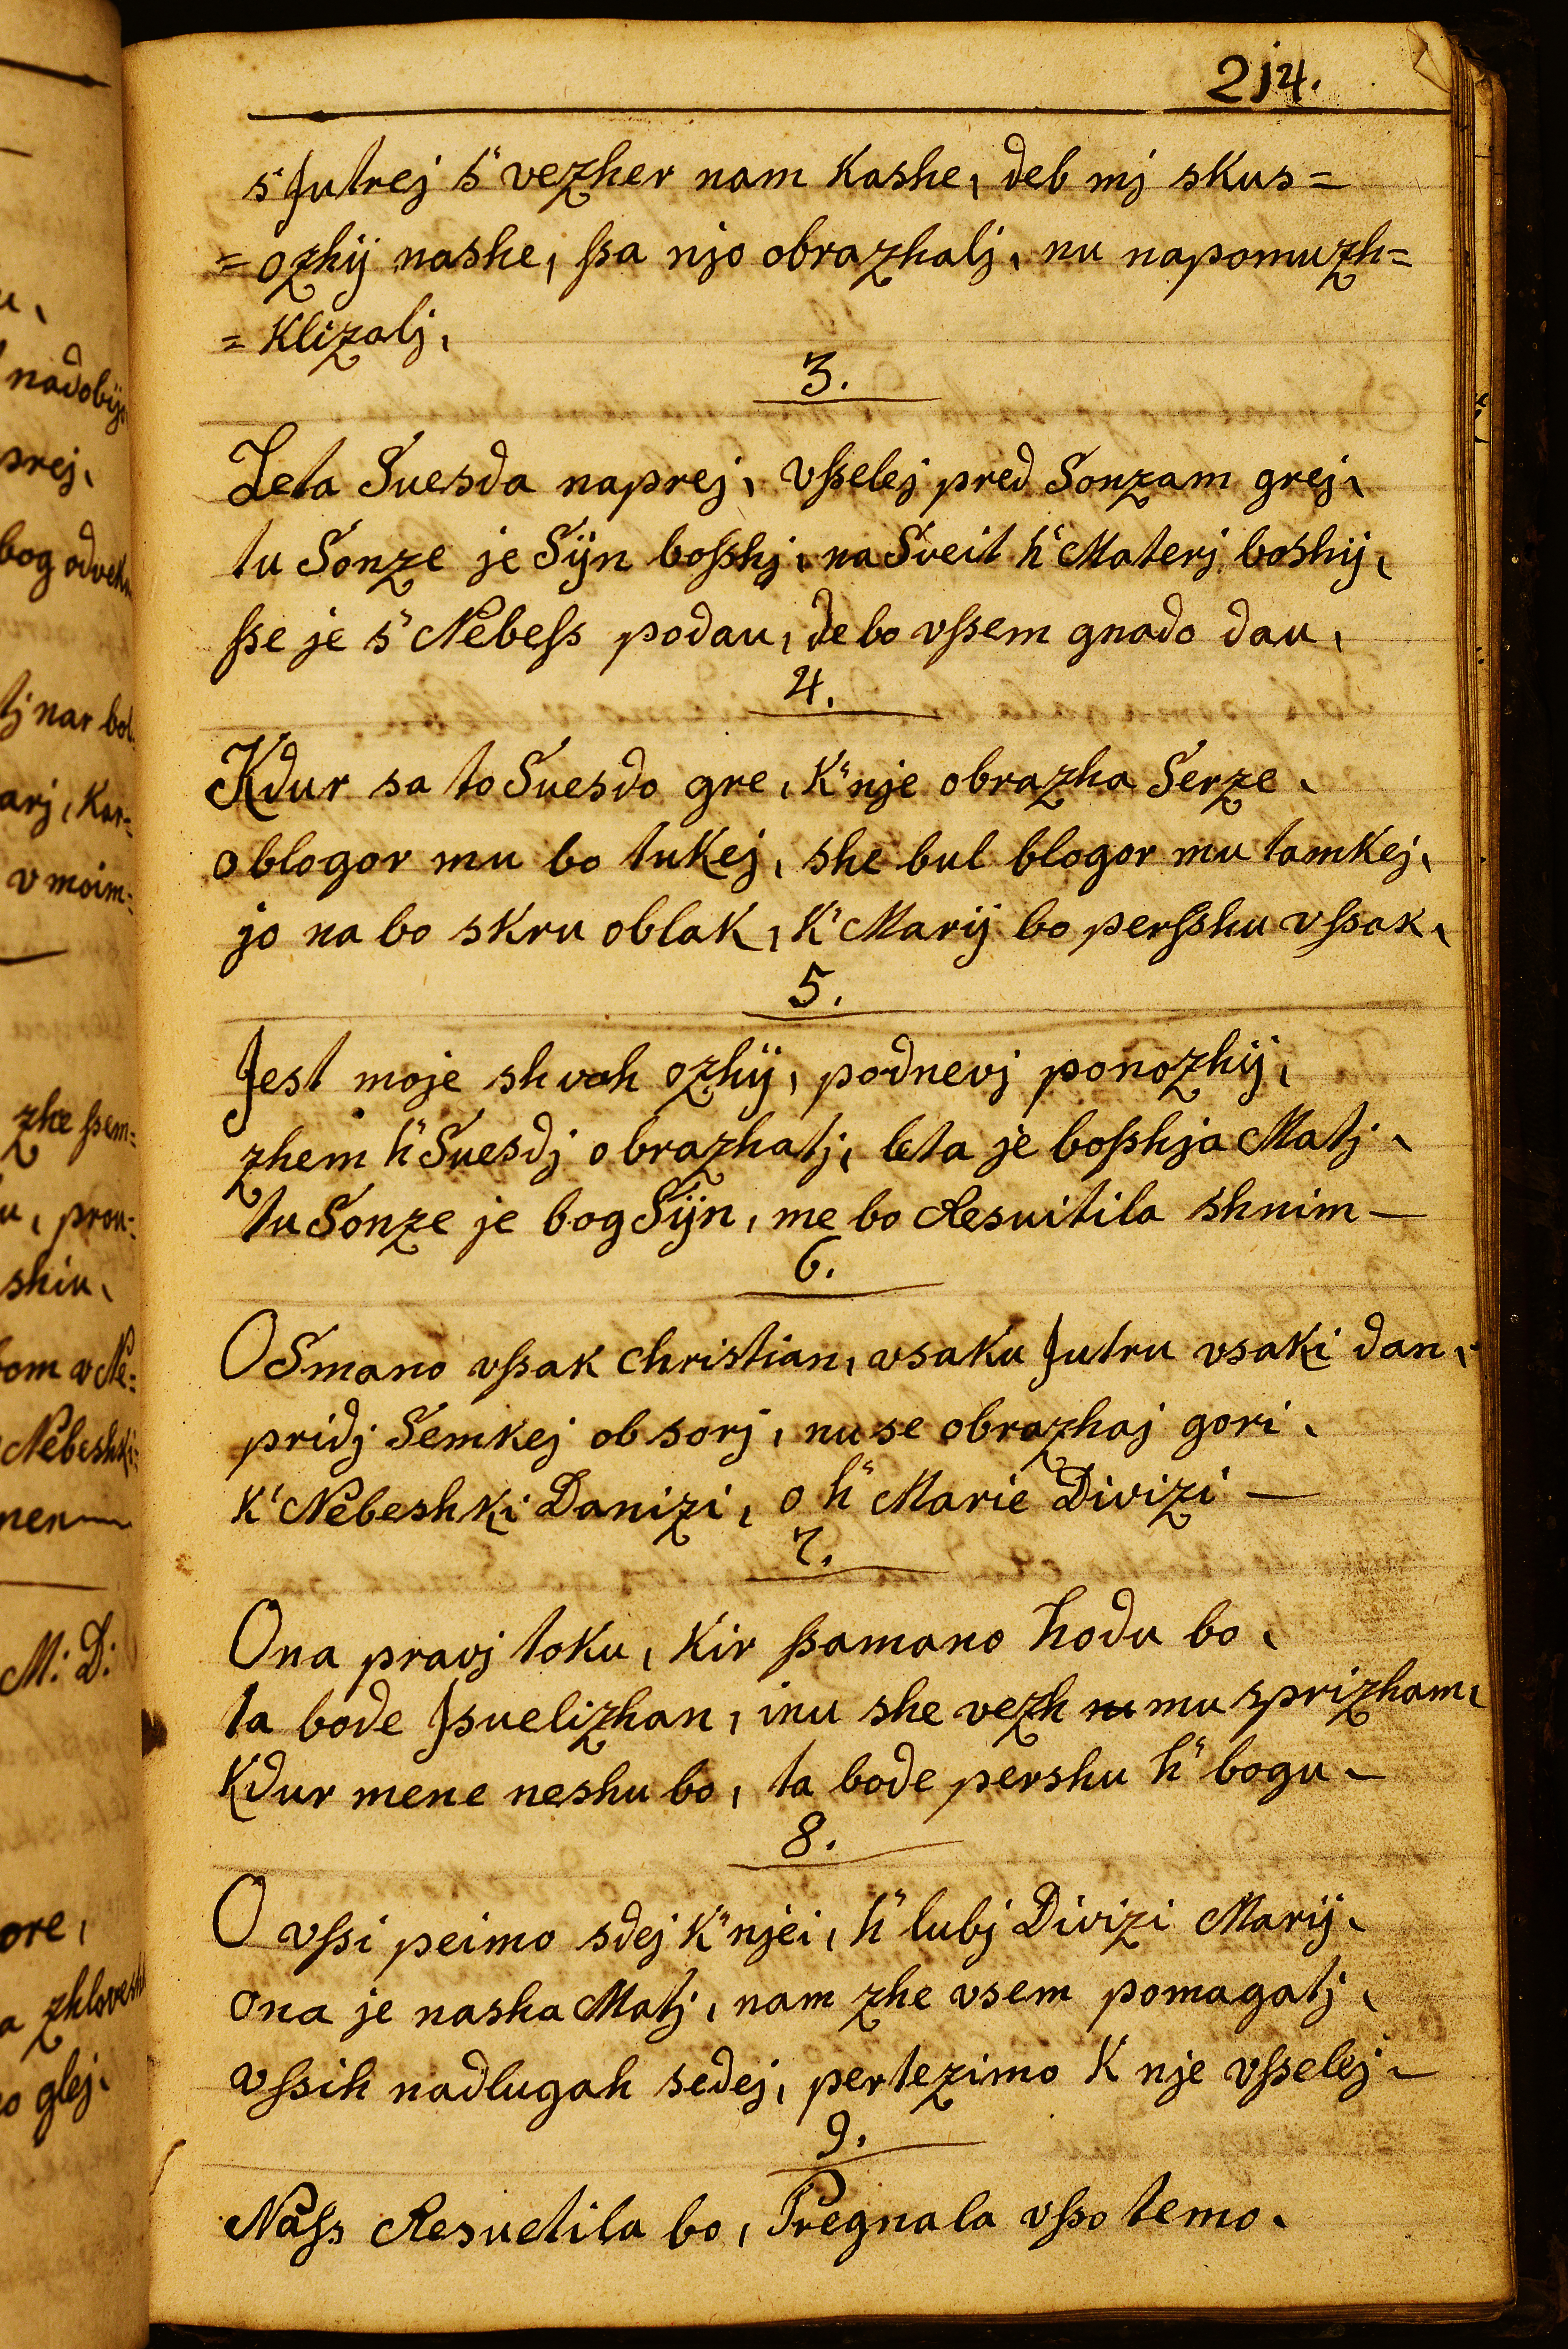 214.
s Jutrej s" vezher nam kashe, deb mj skus=
=ozhij nashe, ſsa njo obrazhalj, nu napomuzh=
=klizalj,
3.
Leta Suesda naprej, vſselej pred Sonzam grej,
tu Sonze je Sÿn boſshj, na Sveit h" Materj boshij,
ſse je s" Nebeſs podau, de bo vſsem gnado dau,
4.
Kdur sa to Suesdo gre, k" nje obrazha Serze,
o blogor mu bo tukej, she bul blogor mu tamkej,
jo na bo skru oblak, k' Marij bo perſshu vſsak,
5.
Jest moje shvah ozhij, podnevj ponozhij,
zhem h" Suesdj obrazhatj, leta je boſshja Matj,
tu Sonze je bog Sÿn, me bo Resuitila shnim –
6.
O Smano vſsak christian, vsaku Jutru vsaki dan,
pridj Semkej ob sorj, nu se obrazhaj gori,
k' Nebeshki Danizi, o h" Marie Divizi –
7.
Ona pravj toku, kir ſsamano hodu bo,
ta bode Jsuelizhan, inu she vezh mu sprizham,
kdur mene neshu bo, ta bode pershu h" bogu –
8.
O vſsi peimo sdej k" njei, h" lubj Divizi Marij,
ona je nasha Matj, nam zhe vsem pomagatj,
vſsih nadlugah sedej, pertezimo k nje vſselej –
9.
Naſs Resuetila bo, Pregnala vſso temo,
nadobÿ
prej,
bog odvek
tj nar bol
arj, kar=
v moim=
zhe ſsem=
u, prou=
shiu,
bom v Ne=
Nebeshki=
M: D:
ore,
a zhlovesh
o glej,